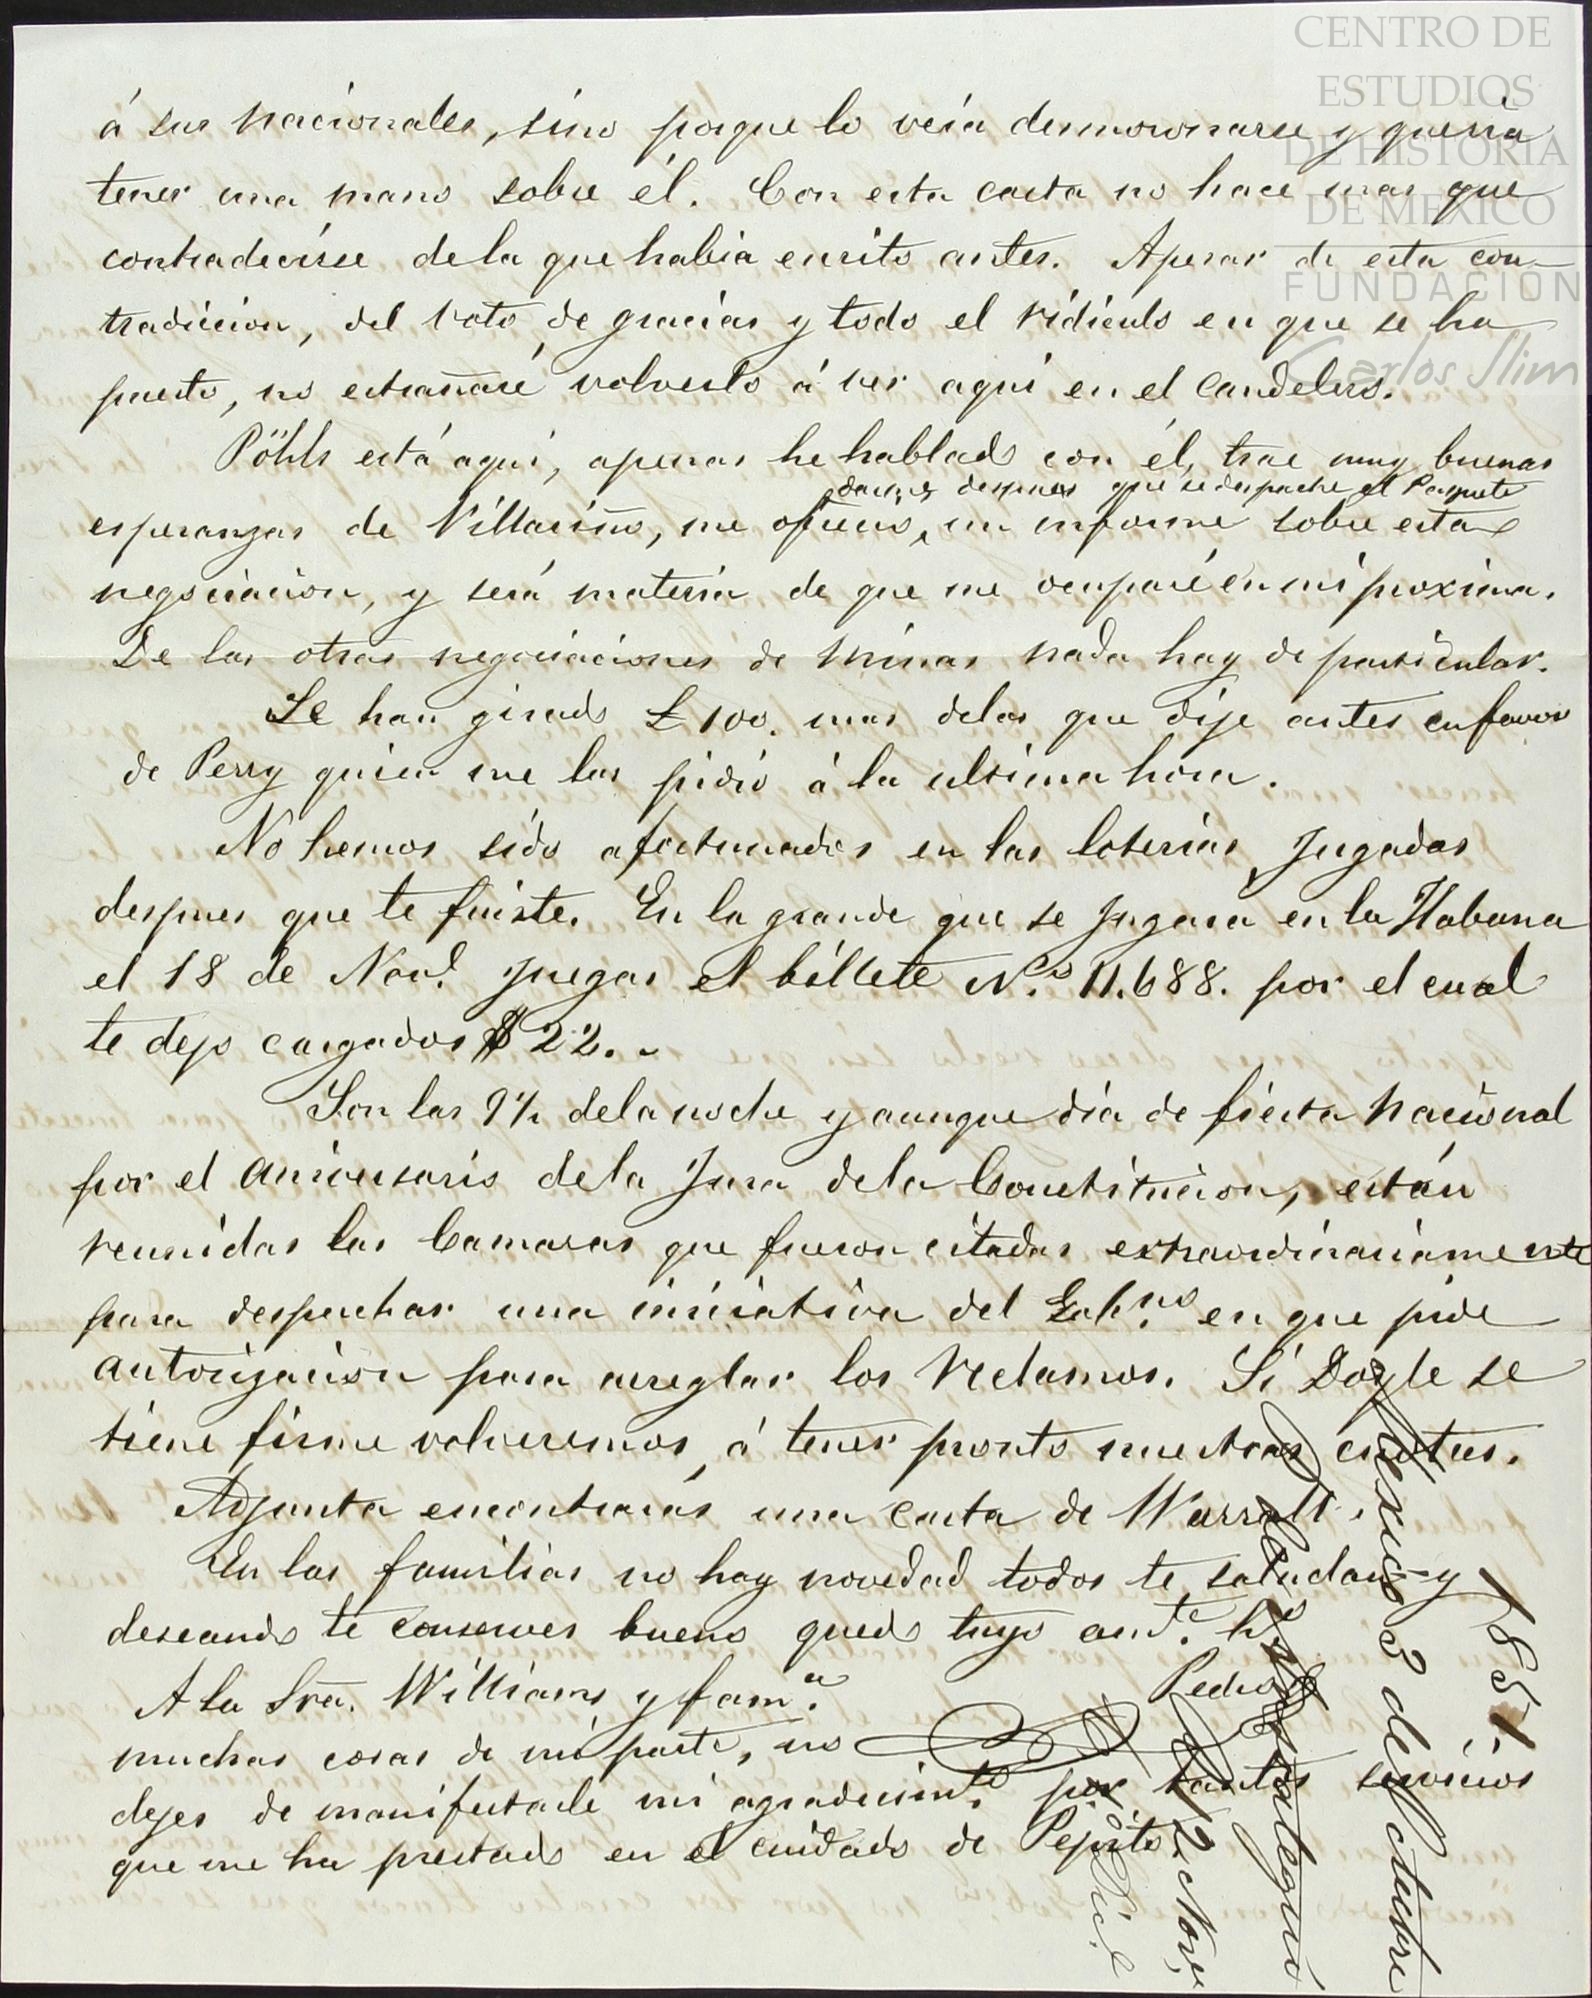 CENTRO DE
ESTUDIOS
DE HISTORIA
DE MÉXICO
FUNDACIÓN
Carlos Slim
á sus nacionales, sino porque lo veia desmoronarse y queria
tener una mano sobre él. Con esta carta no hace mas que
contradecirse de la que habia escrito antes. Apesar de esta con-
tradiccion, del voto de gracias y todo el ridiculo en que se ha
puesto, no estrañaré volverlo á ver aqui en el candelero.
Pöhls está aqui, apenas he hablado con él, trae muy buenas
darme despues que se despache el Paquete
esperanzas de Villariño, me ofreció, un informe sobre esta
negociacion, y será materia de que me ocuparé en mi proxima.
De las otras negociaciones de minas nada hay de particular.
Se han girado £ 100. mas delas que dije antes en favor
de Perry quien me las pidió á la ultima hora.
No hemos sido afortunados en las loterias jugadas
despues que te fuiste. En la grande que se jugará en la Habana
el 18 de Nov.e juegas el billete N.o 11.688. por el cual
te dejo cargados $ 22..
Son las 9½ dela noche y aunque dia de fiesta Nacional
por el aniversario dela Jura dela Constitucion, están
reunidas las Camaras que fueron citadas extraordinariamente
para despachar una iniciativa del Gob.no en que pide
autorizacion para arreglar los reclamos. Si Doyle se
tiene firme volveremos á tener pronto nuestras cuotas.
Adjunta encontrarás una carta de Worrall.
En las familias no hay novedad todos te saludan y
deseando te conserves bueno quedo tuyo am.te h.o
Pedro
A la Sra. Williams y fam.a
muchas cosas de mi parte, no
dejes de manifestarle mi agradecim.to por tantos servicios
que me ha prestado en el cuidado de Pepito.
1851
Mexico 3 de Octubre
12 Nov.e
Dic.e